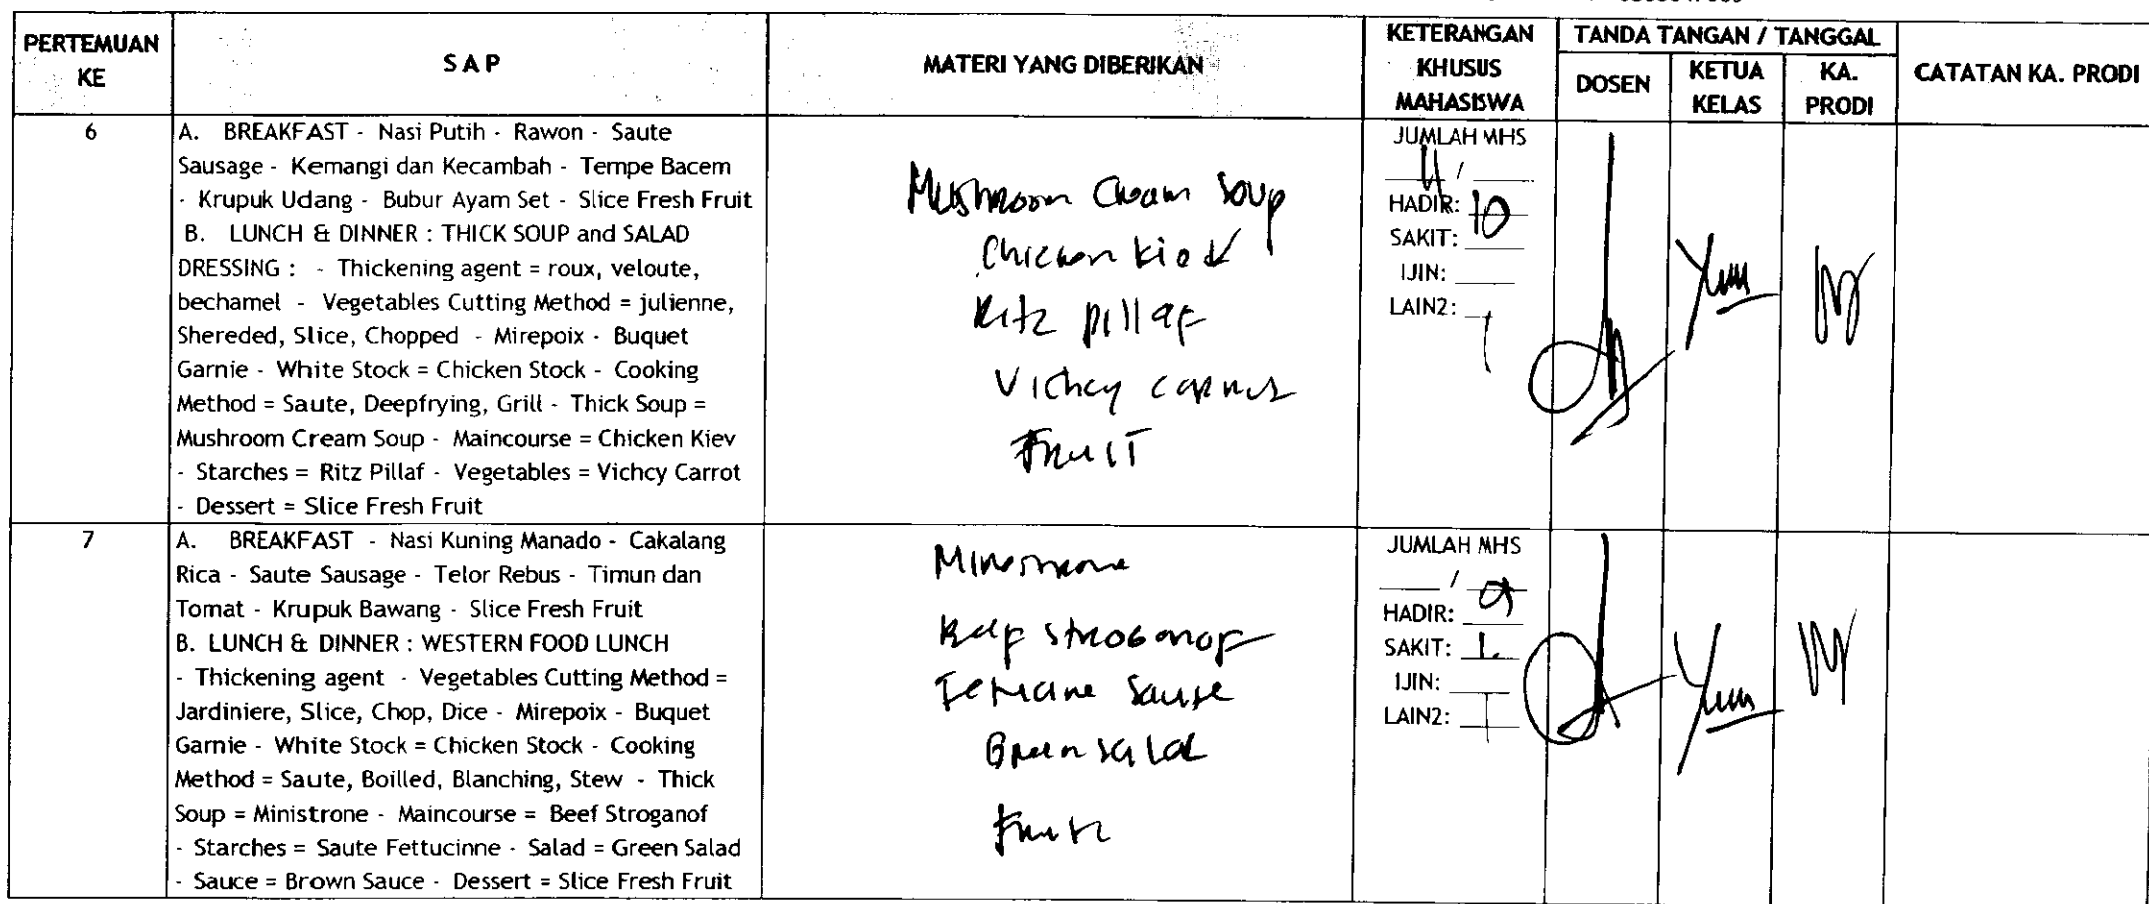 PERTEMUAN KE
S A P
MATERI YANG DIBERIKAN
KETERANGAN KHUSUS MAHASISWA
TANDA TANGAN / TANGGAL
DOSEN
KETUA KELAS
KA. PRODI
CATATAN KA. PRODI
6
A. BREAKFAST - Nasi Putih - Rawon - Saute
Sausage - Kemangi dan Kecambah - Tempe Bacem
- Krupuk Udang - Bubur Ayam Set - Slice Fresh Fruit
B. LUNCH & DINNER : THICK SOUP and SALAD
DRESSING : - Thickening agent = roux, veloute,
bechamel - Vegetables Cutting Method = julienne,
Shereded, Slice, Chopped - Mirepoix - Buquet
Garnie - White Stock = Chicken Stock - Cooking
Method = Saute, Deepfrying, Grill - Thick Soup =
Mushroom Cream Soup - Maincourse = Chicken Kiev
- Starches = Ritz Pillaf - Vegetables = Vichcy Carrot
- Dessert = Slice Fresh Fruit
Mushroom Cream Soup
Chicken Kiev
Ritz pillaf
Vichcy
Fruit
JUMLAH MHS
11 /
HADIR: 10
SAKIT:
IJIN:
LAIN2:
7
A. BREAKFAST - Nasi Kuning Manado - Cakalang
Rica - Saute Sausage - Telor Rebus - Timun dan
Tomat - Krupuk Bawang - Slice Fresh Fruit
B. LUNCH & DINNER : WESTERN FOOD LUNCH
- Thickening agent - Vegetables Cutting Method =
Jardiniere, Slice, Chop, Dice - Mirepoix - Buquet
Garnie - White Stock = Chicken Stock - Cooking
Method = Saute, Boilled, Blanching, Stew - Thick
Soup = Ministrone - Maincourse = Beef Stroganof
- Starches = Saute Fettucinne - Salad = Green Salad
- Sauce = Brown Sauce - Dessert = Slice Fresh Fruit
stroganof
Green salad
JUMLAH MHS
/
HADIR: 9
SAKIT: 1
IJIN:
LAIN2: